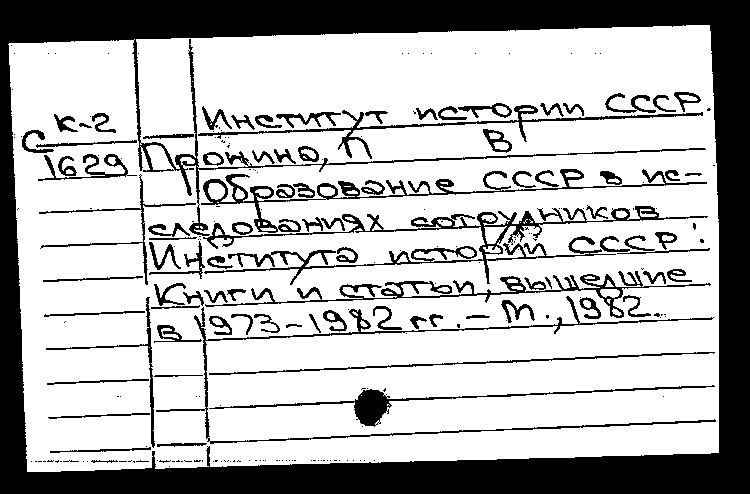 К-2 Институт истории СССР.
С 1629 Пронина, П В
Образование СССР в ис-
следованиях сотрудников
Института истории СССР:
Книги и статьи, вышедшие
в 1973-1982 гг. - М., 1982.